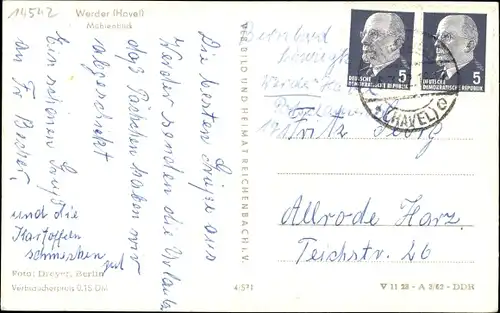 14542
Werder (Havel)
Mühlenblick
Die besten Grüße aus
Werder senden die Urlauber
das Päckchen haben wir
abgeschickt
Ein schönen Gruß
an Fr Becher,
und die
Kartoffeln
schmecken gut
Foto: Dreyer, Berlin
Verbraucherpreis 0,15 DM
4/571
VEB BILD UND HEIMAT REICHENBACH i. V.
DEUTSCHE
DEMOKRATISCHE REPUBLIK
5
DEUTSCHE
DEMOKRATISCHE REPUBLIK
5
(HAVEL)
Werder
Fritz
Allrode Harz.
Teichstr. 26
V 11 28 - A 3/62 - DDR